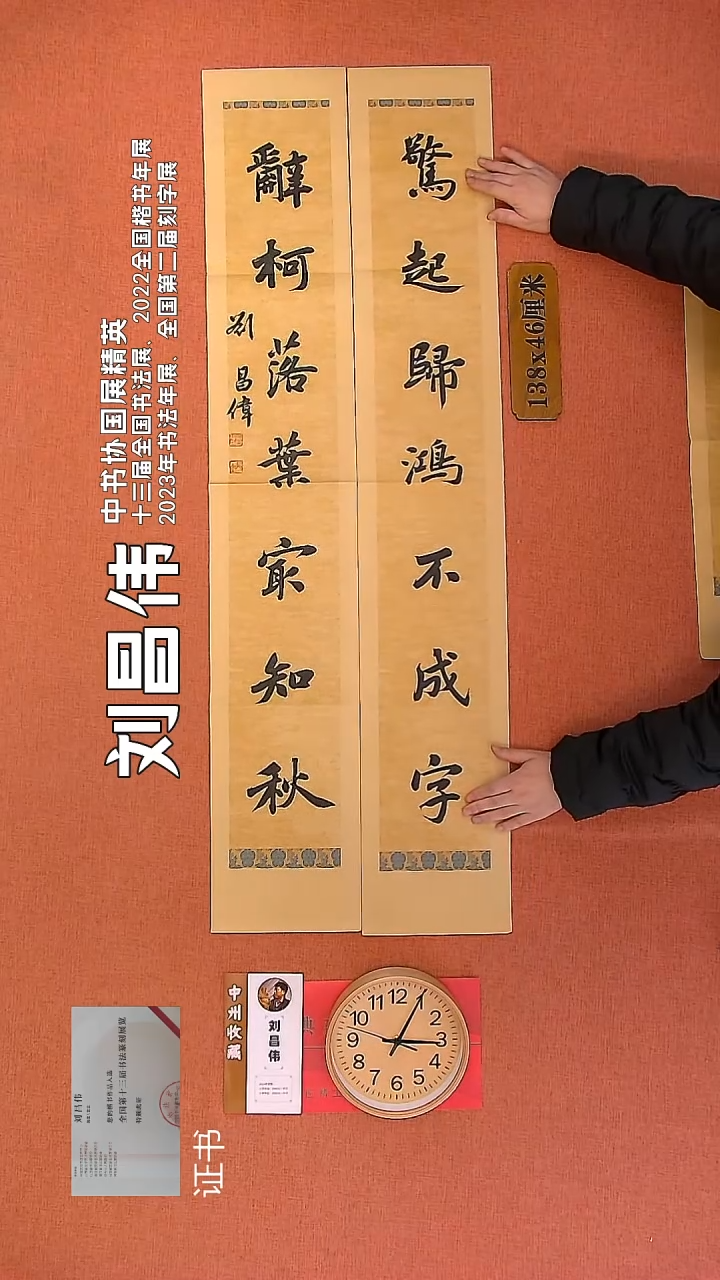 驚起歸鴻不成字
辭柯落葉冣知秋
劉昌偉
138x46厘米
刘昌伟
中书协国展精英
十三届全国书法展、2022全国楷书年展
2023年书法年展、全国第二届刻字展
刘昌伟
12
1
2
3
4
5
6
7
8
9
10
11
刘昌伟
您的楷书作品入选
全国第十三届书法篆刻展览
特颁此证
证书